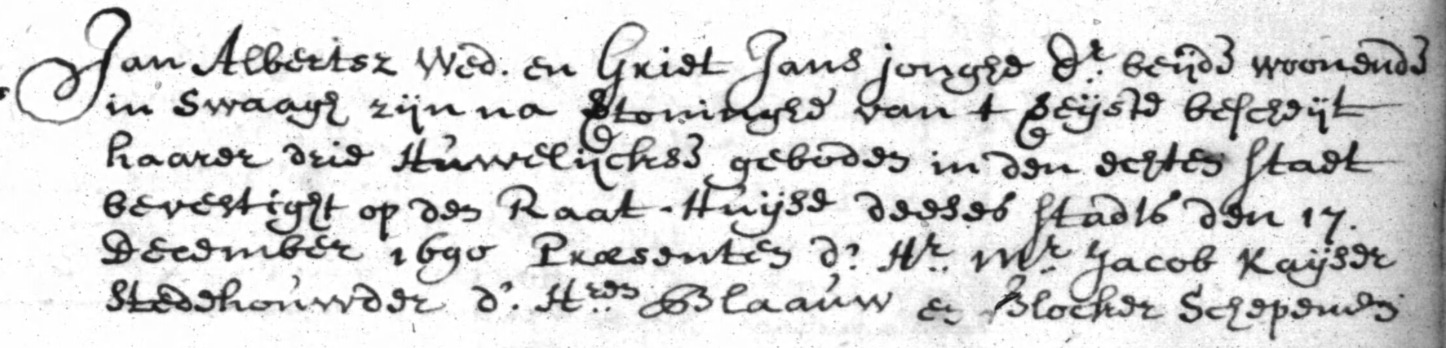 Jan Albertsz Wed. en Griet Jans jonghe Dr. beijde woonende
in Swaagh zijn na Stoninghe van t Seijste bescheijt
haarer drie Huwelijckse geboden in den echten staet
bevestight op den Raat-Huijse deeses stadts den 17.
December 1690 Præsenten d'. Hr. Mr. Jacob Kaijser
Stedehouwder d'. Hren. Blaauw en Blocker Schepenen